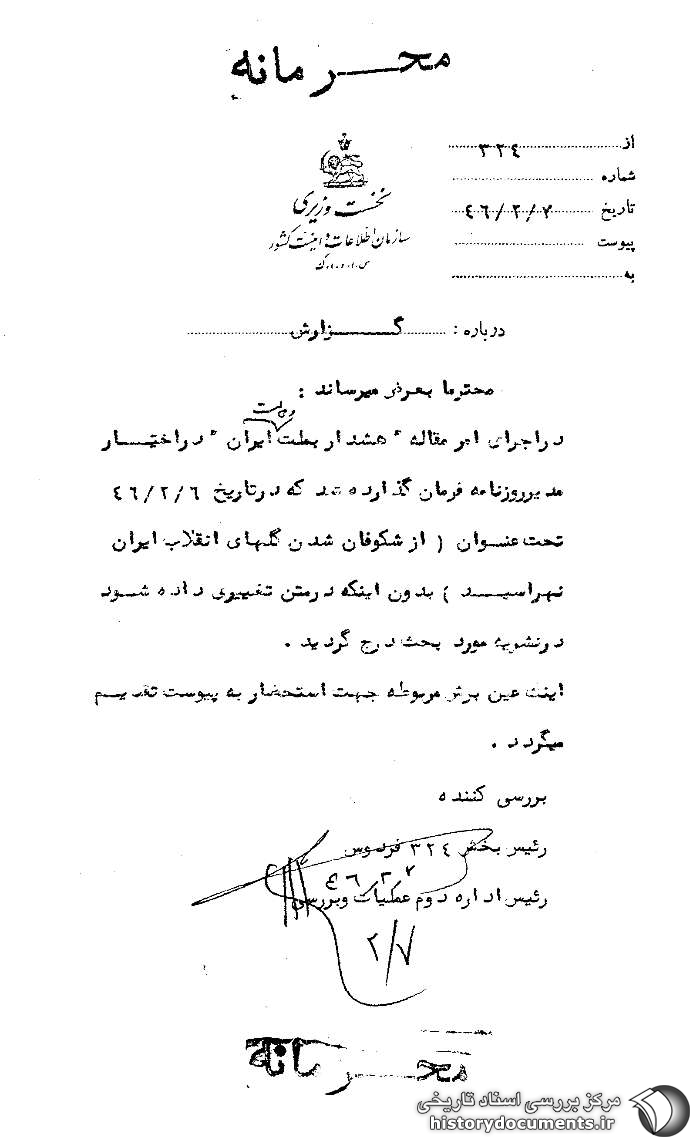 محرمانه
از ۳۲٤
شماره
تاریخ ٤٦/۲/۷
پیوست
به
نخست وزیری
سازمان اطلاعات و امنیت کشور
س.ا.و.ا.ک
درباره : گزارش
محترما بعرض میرساند :
دراجرای امر مقاله " هشدار بملت ایران " دراختیار
مدیرروزنامه فرمان گذارده شد که درتاریخ ٤٦/۲/٦
تحت عنوان ( از شکوفان شدن گلهای انقلاب ایران
نهراسید ) بدون اینکه درمتن تغییری داده شود
درنشریه مورد بحث درج گردید .
اینک عین برش مربوطه جهت استحضار به پیوست تقدیم
میگردد .
بررسی کننده
رئیس بخش ۳۲٤ فردوس
٤٦/۲/۷
رئیس اداره دوم عملیات وبررسی
۲/۷
محرمانه
مرکز بررسی اسناد تاریخی
historydocuments.ir